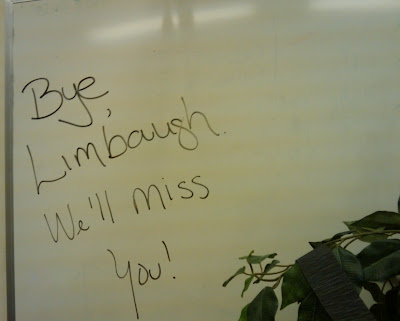 Bye,
Limbaugh.
We'll miss
You!